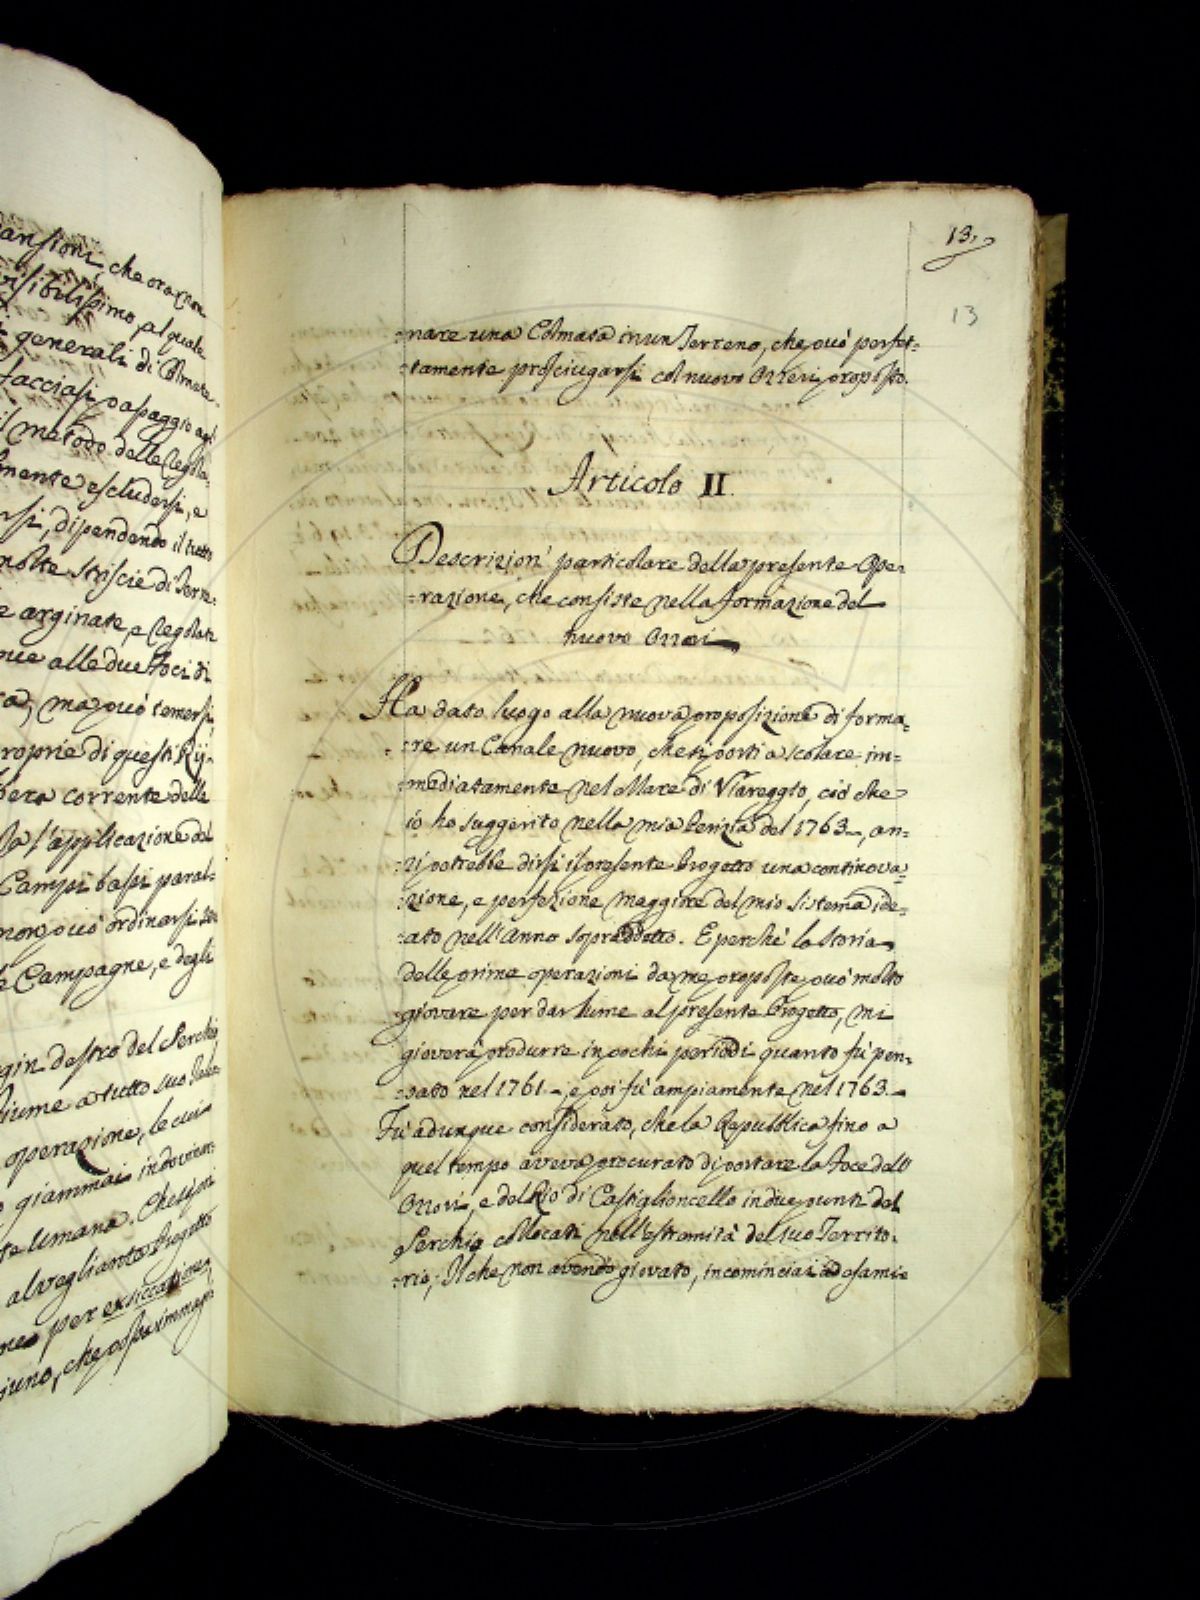 ansioni, che ora non
visibilissimo, al quale
generali di Colmate
facciasi o asaggio
il metodo delle regola-
mente escludersi, e
rsi, dipendendo il tutto
molte striscie di Terre-
e arginate, e regolate
que alle due Foci di
ma può temersi,
proprie di questi Rij-
bera corrente delle
la l'applicazione del
Campi bassi paral-
non può ordinarsi
le Campagne, e degli
gin destro del Serchio
fiume a tutto suo
operazione, le cui
giammai indovinar-
te umana. Che si
al vegliante Progetto
per exsiccationem
iuno, che possa immagi-
13.
13
=nare una Colmata in un Terreno, che può perfet=
=tamente prosciugarsi col nuovo Ozzeri proposto.
Articolo II.
Descrizion' particolare della presente Ope=
=razione, che consiste nella formazione del
nuovo Ozzeri
Ha dato luogo alla nuova proposizione di forma=
=re un Canale nuovo, che si porti a scolare im=
=mediatamente nel Mare di Viareggio, ciò che
io ho suggerito nella mia Perizia del 1763, an=
=zi potrebbe dirsi il presente Progetto una continova=
=zione, e perfezione maggiore del mio sistema ide=
=ato nell'Anno sopraddetto. E perchè la Storia
delle prime operazioni da me proposte può molto
giovare per dar lume al presente Progetto, mi
gioverà produrre in pochi periodi quanto fù pen=
=sato nel 1761, e poi fù ampiamente nel 1763.
Fù adunque considerato, che la Repubblica fino a
quel tempo aveva procurato di portare la Foce dell'
Ozzori, e del Rio di Castiglioncello in due punti del
Serchio collocati nell'estremità del suo Territo=
=rio; Il che non avendo giovato, incominciai ad esami=